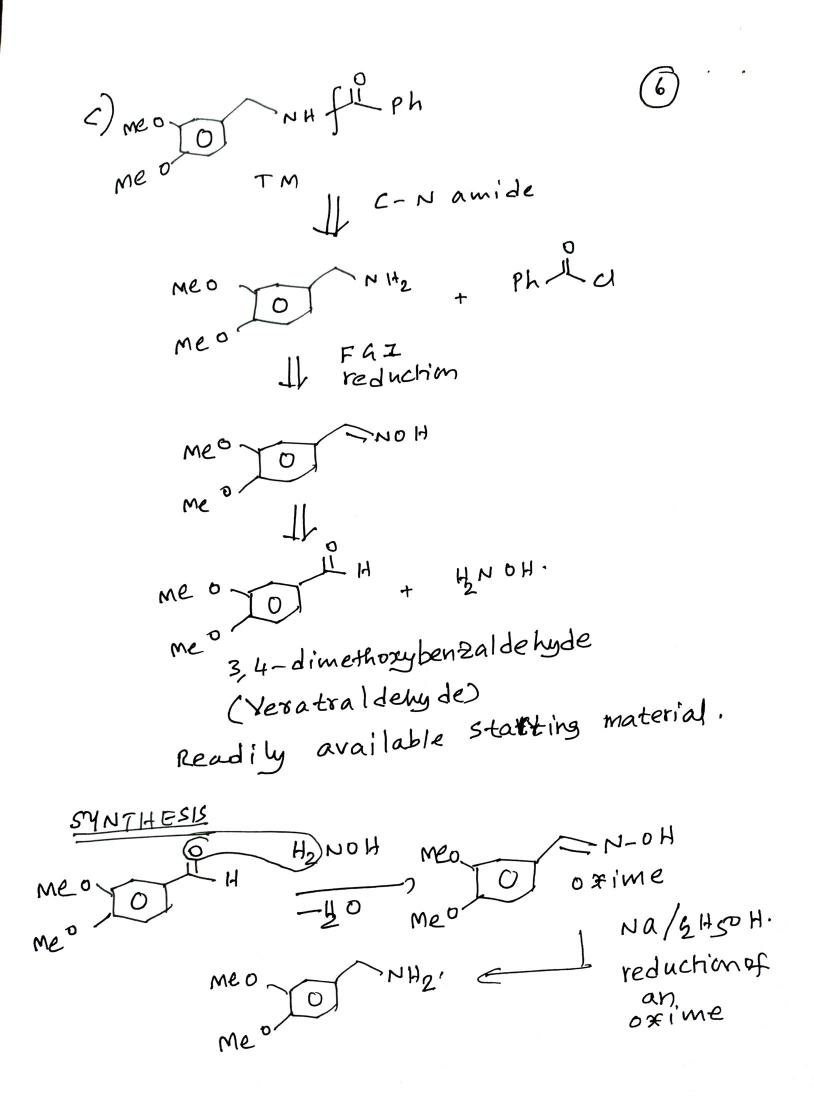 6
c) MeO NH O Ph
MeO
TM
C-N amide
MeO NH2 + Ph O Cl
MeO
FGI
reduction
MeO NOH
MeO
MeO O H + H2NOH.
MeO
3,4-dimethoxybenzaldehyde
(Veratraldehyde)
Readily available starting material.
SYNTHESIS
MeO O H H2NOH -H2O MeO N-OH
MeO MeO oxime
Na/C2H5OH.
MeO NH2. reduction of
MeO an
oxime